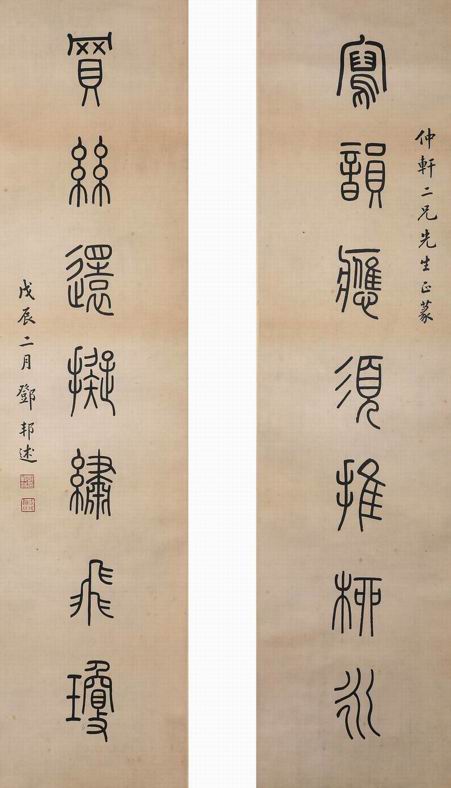 仲軒二兄先生正篆
寫韻應須推柳永
買絲還擬繡飛瓊
戊辰二月鄧邦述